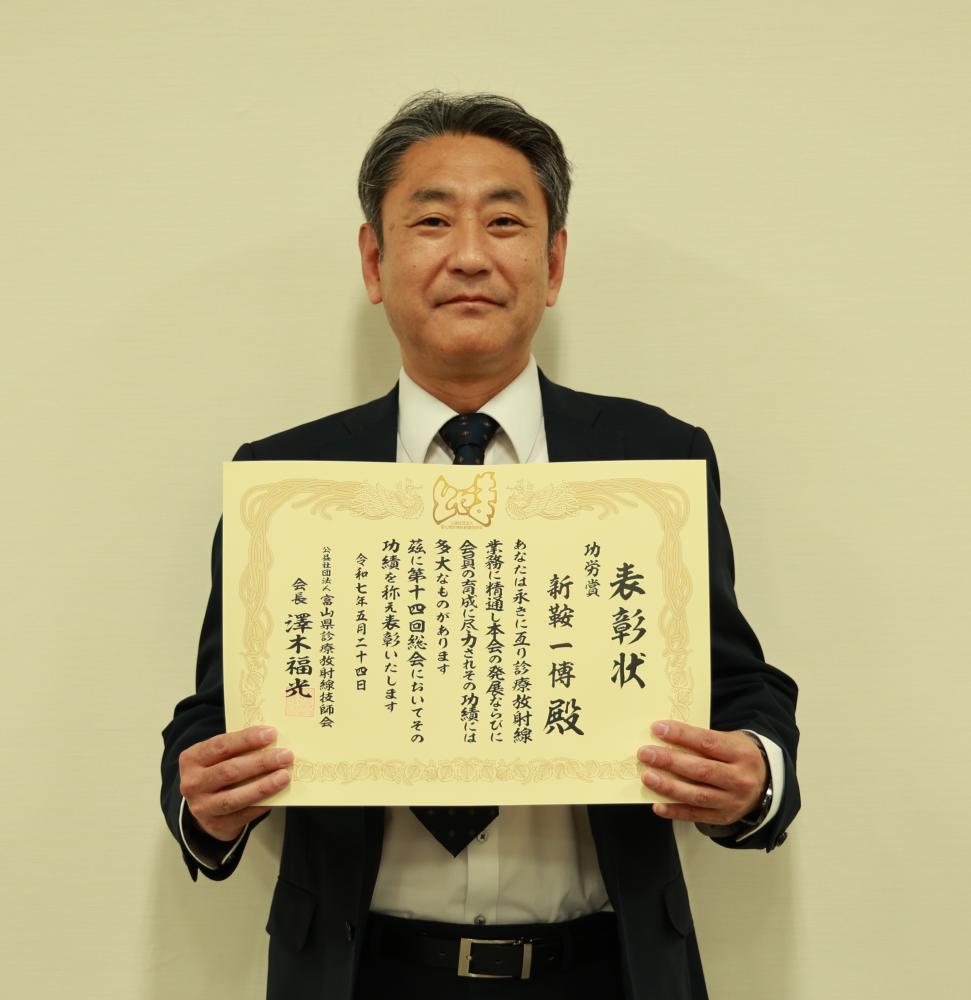 とやま
表彰状
功労賞
新鞍一博殿
あなたは永きに亙り診療放射線
業務に精通し本会の発展ならびに
会員の育成に尽力されその功績には
多大なものがあります
茲に第十四回総会においてその
功績を称え表彰いたします
令和七年五月二十四日
公益社団法人富山県診療放射線技師会
会長 澤木福光